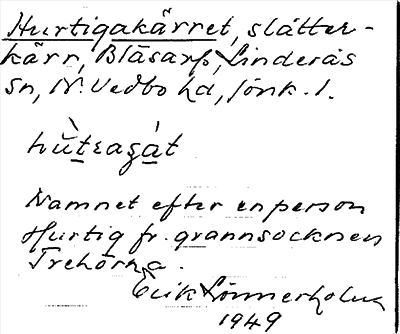 Hurtigakärret, slåtter-
kärr, Blåsarp, Linderås
sn, N. Vedbo hd, Jönk. l.
hùtragát
Namnet efter en person
Hurtig fr. grannsocknen
Trehörna.
Erik Lönnerholm
1949